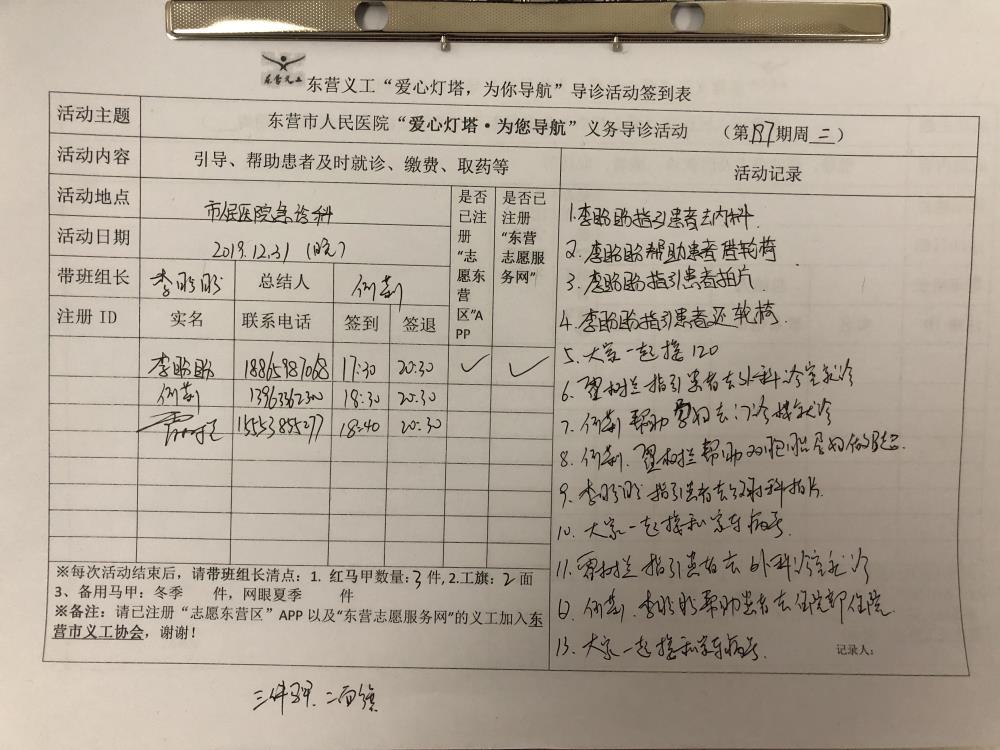 东营义工
东营义工“爱心灯塔，为你导航”导诊活动签到表
活动主题 东营市人民医院“爱心灯塔·为您导航”义务导诊活动 （第197期周三）
活动内容 引导、帮助患者及时就诊、缴费、取药等 活动记录
活动地点 市人民医院急诊科
是否已注册“志愿东营区”APP
是否已注册“东营志愿服务网”
活动日期 2019.12.31（晚）
带班组长 李盼盼 总结人 何荆
注册 ID 实名 联系电话 签到 签退
李盼盼 18865987068 17:30 20:30 ✓ ✓
何荆 13963362300 18:30 20:30
15553855277 18:40 20:30
1.李盼盼指引患者去内科.
2.李盼盼帮助患者借轮椅
3.李盼盼指引患者拍片
4.李盼盼指引患者还轮椅.
5.大家一起接120
6.翟树兰指引患者去外科诊室就诊
7.何荆帮助孕妇去门诊楼就诊
8.何荆.翟树兰帮助双胞胎孕妇做B超.
9.李盼盼指引患者去放射科拍片.
10.大家一起接私家车病号.
11.翟树兰指引患者去外科诊室就诊
12.何荆.李盼盼帮助患者去住院部住院.
13.大家一起接私家车病号.
记录人：
※每次活动结束后，请带班组长清点：1. 红马甲数量:3件,2.工旗：2面
3、备用马甲：冬季 件，网眼夏季 件
※备注：请已注册“志愿东营区”APP 以及“东营志愿服务网”的义工加入东
营市义工协会，谢谢！
三件 二面旗